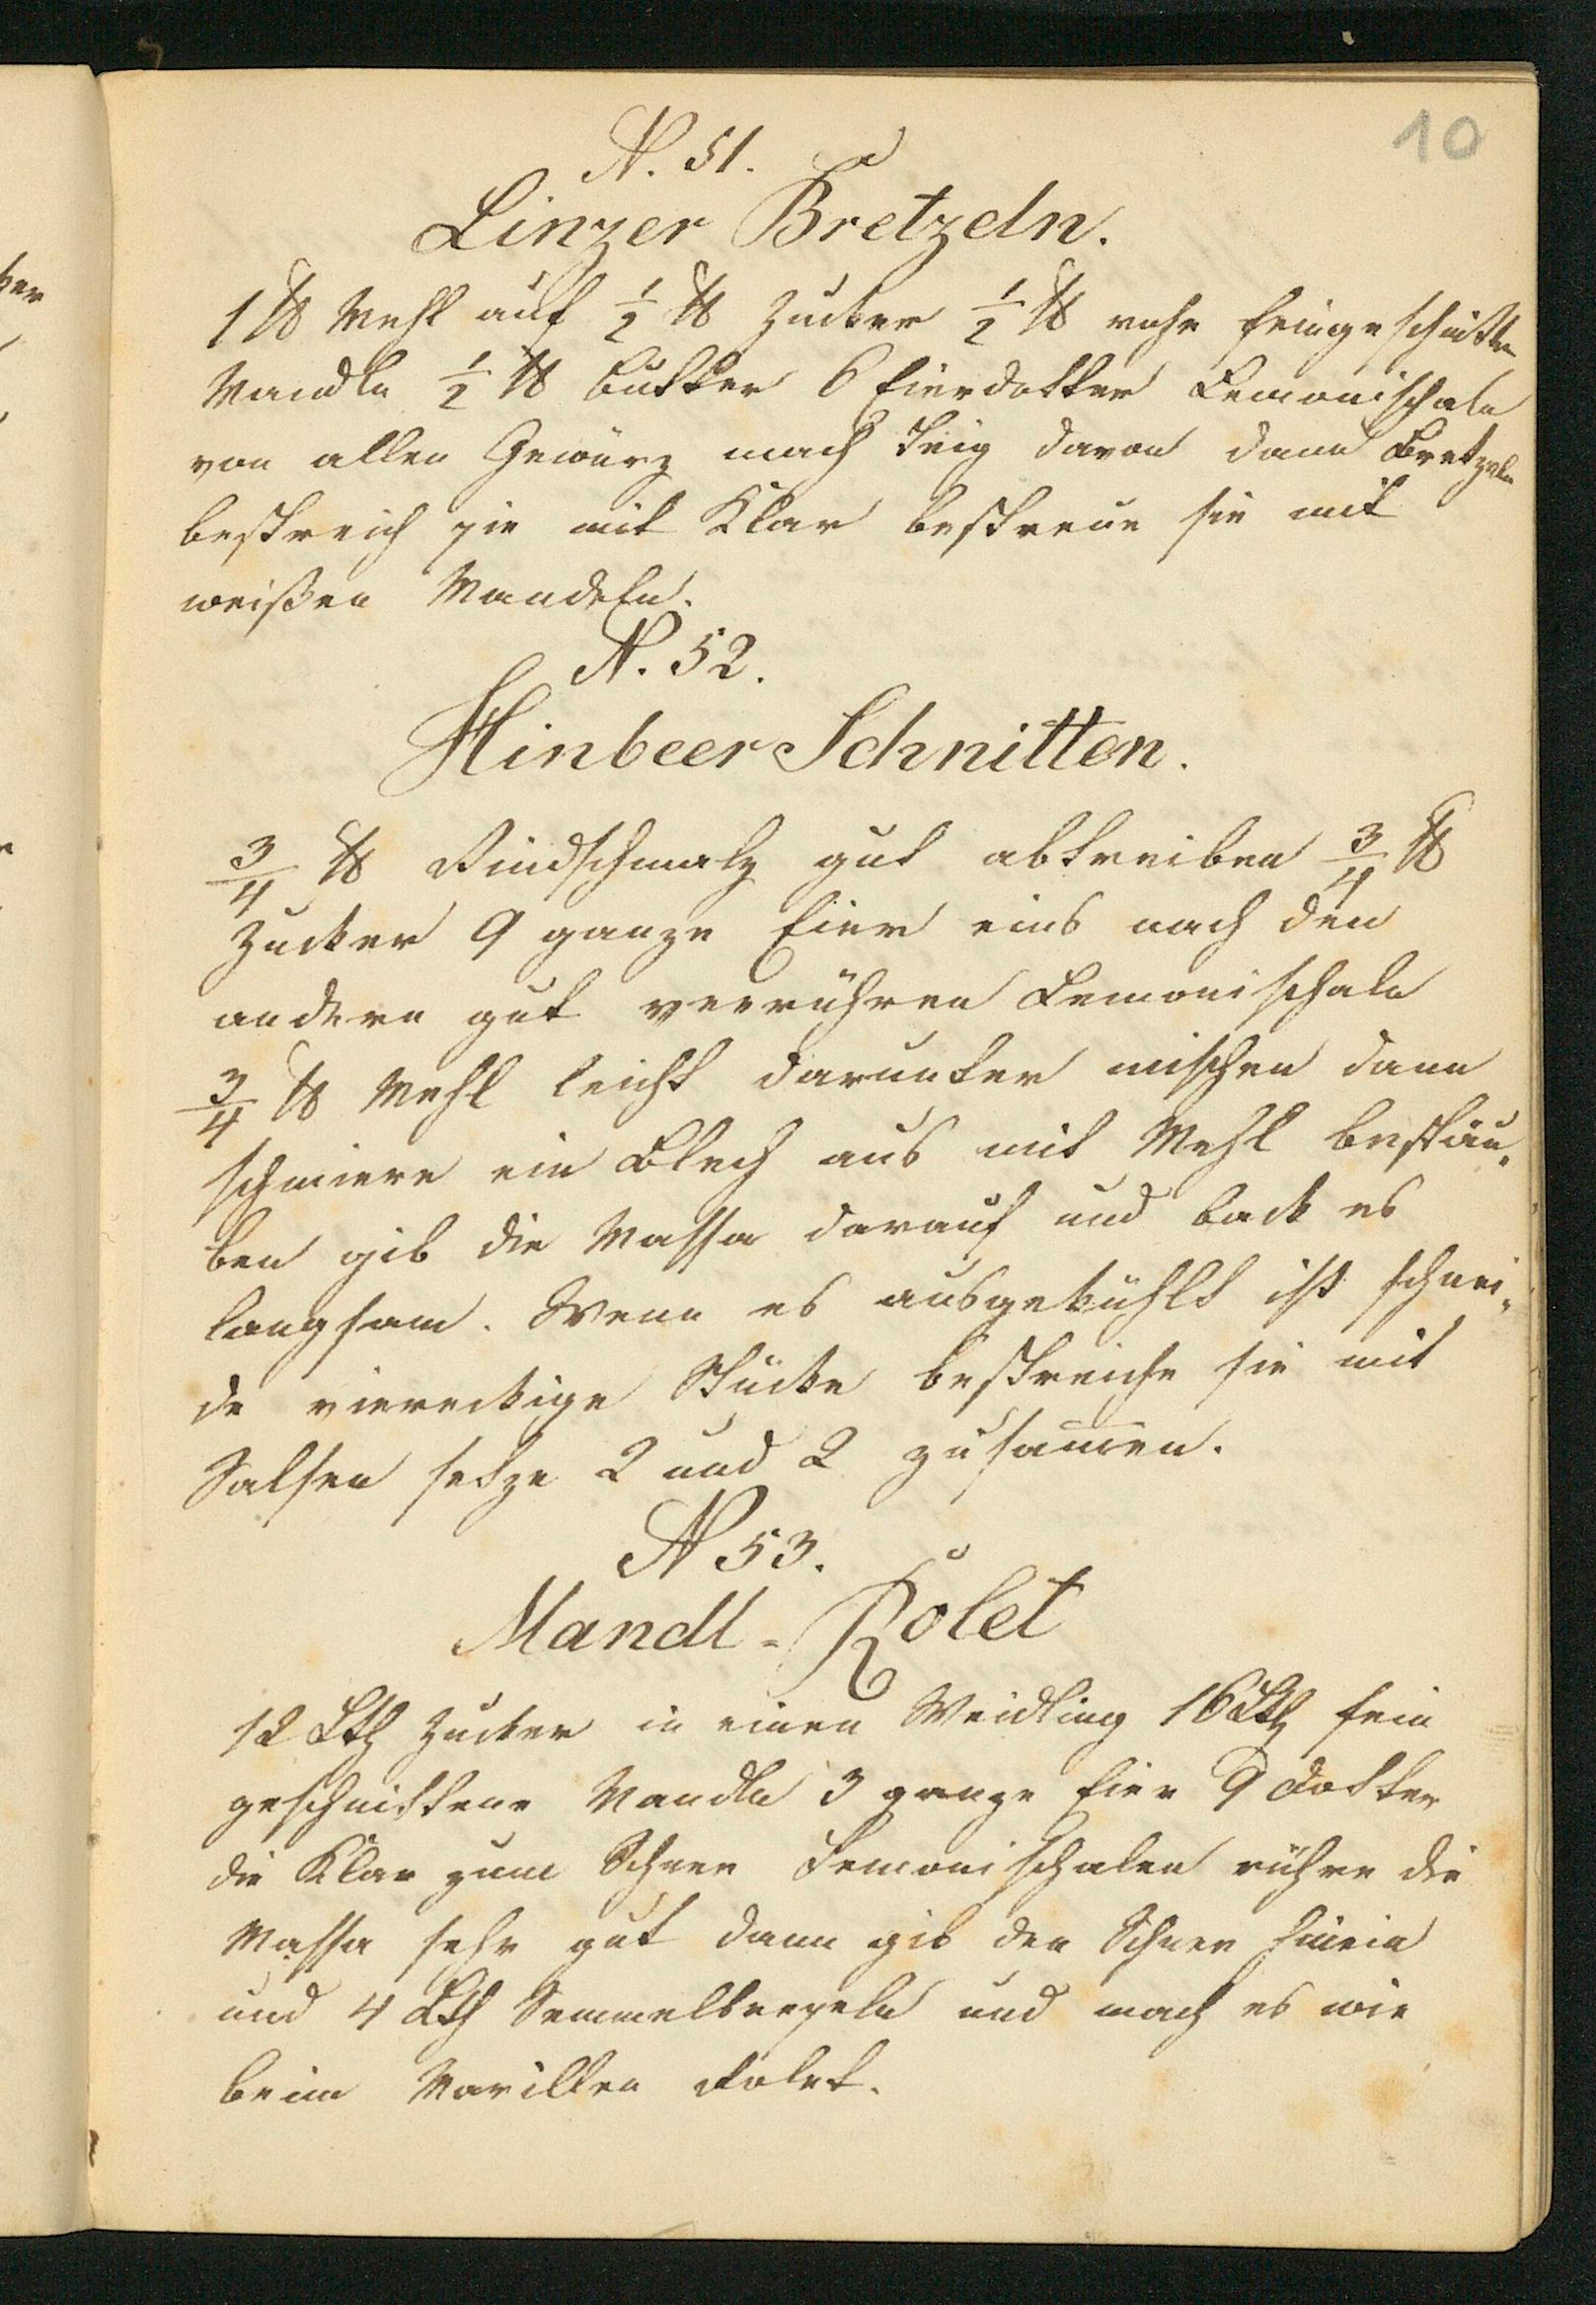 10
N. 51.
Linzer Bretzeln.
1 ℔ Mehl auf ½ ℔ Zucker ½ ℔ rohe feingeschnitten
Mandln ½ ℔ Butter 6 Eierdotter Lemonischaln
von allen Gewürz mach Teig davon dann Bretzeln
bestreich sie mit Klar bestreue sie mit
weißen Mandeln.
N. 52.
Hinbeer Schnitten.
3/4 ℔ Rindschmalz gut abtreiben 3/4 ℔
Zucker 9 ganze Eier eins nach den
andern gut verrühren Lemonischaln
3/4 ℔ Mehl leicht darunter mischen dann
schmiere ein Blech aus mit Mehl bestäu„
ben gib die Massa darauf und back es
langsam. Wenn es ausgekühlt ist schnei„
de viereckige Stücke bestreiche sie mit
Salsen setze 2 und 2 zusamen.
N 53.
Mandl-Kolet
12 Lth Zucker in einen Weidling 16 Lth fein
geschnittene Mandln 3 ganze Eier 9 Dotter
die Klar zum Schnee Lemonischalen rühre die
Massa sehr gut dann gib den Schnee hinein
und 4 Lth Semmelbreseln und mach es wie
beim Marillen Kolet.